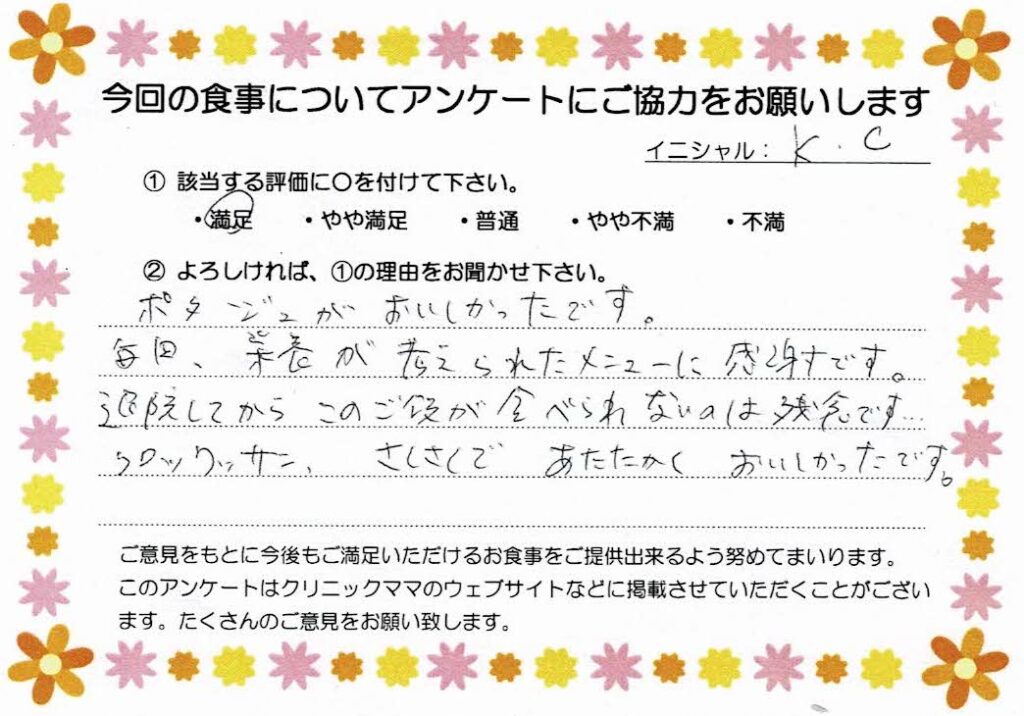 今回の食事についてアンケートにご協力をお願いします
イニシャル： K . C
① 該当する評価に○を付けて下さい。
・満足 ・やや満足 ・普通 ・やや不満 ・不満
② よろしければ、①の理由をお聞かせ下さい。
ポタージュが おいしかったです。
毎回、栄養が 考えられたメニューに 感謝です。
退院してから このご飯が 食べられないのは 残念です…
クロックッサン、 さくさくで あたたかく おいしかったです。
ご意見をもとに今後もご満足いただけるお食事をご提供出来るよう努めてまいります。
このアンケートはクリニックママのウェブサイトなどに掲載させていただくことがござい
ます。たくさんのご意見をお願い致します。